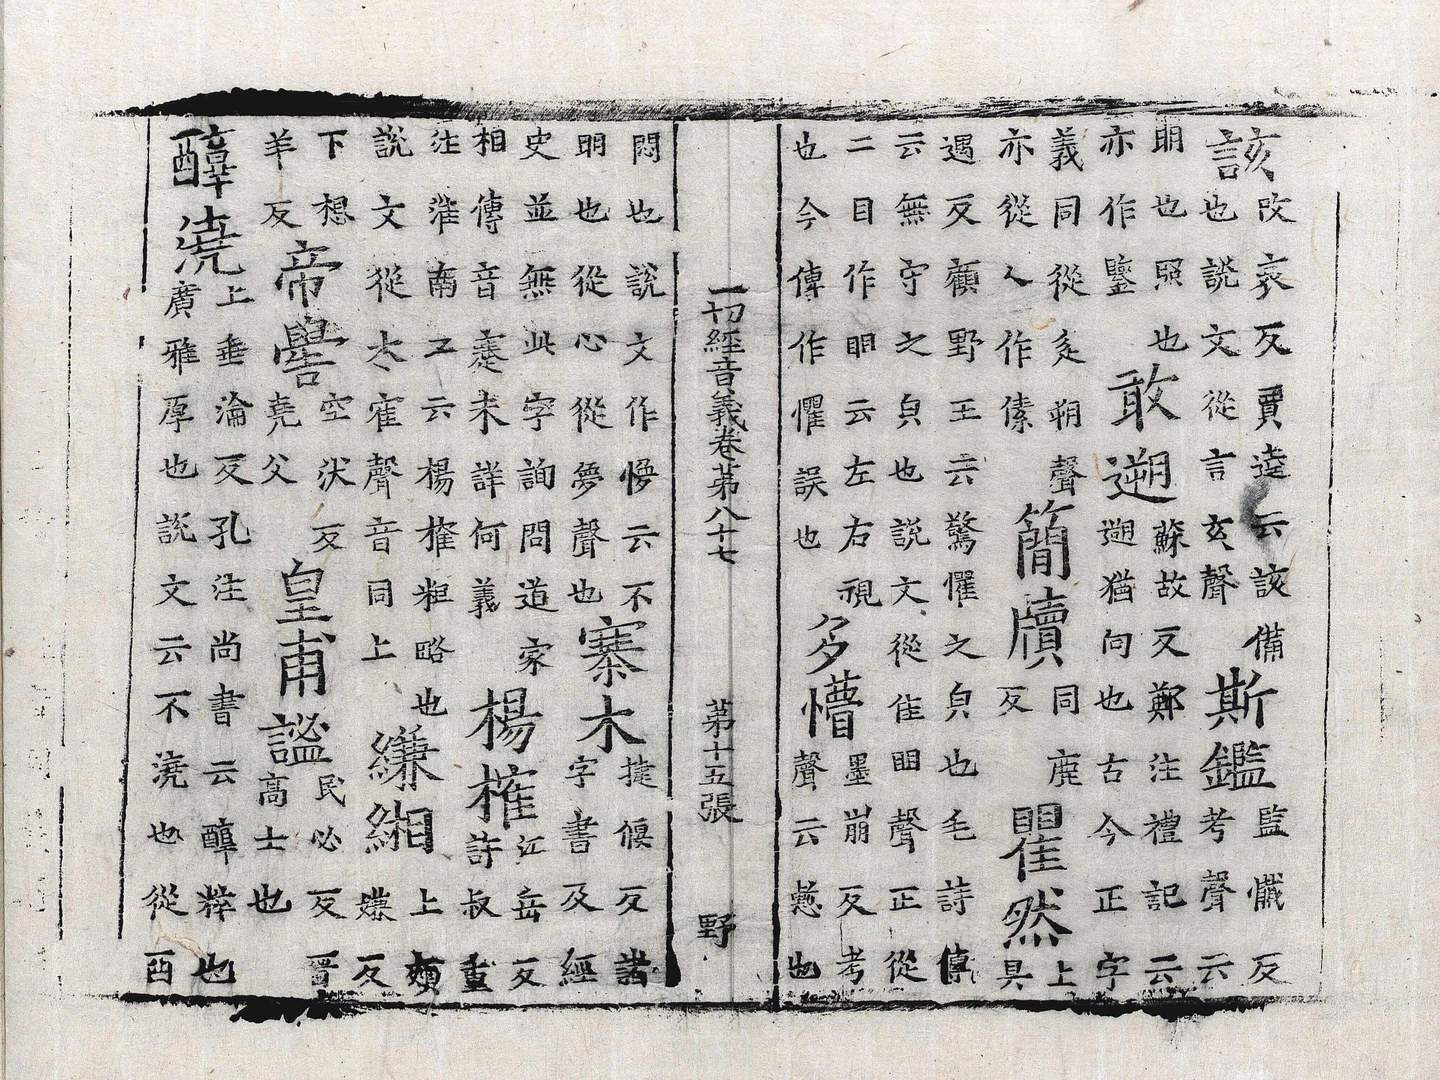 該改哀反賈逵云該備也說文從言亥聲斯鑑監懺反考聲云
明也照也亦作鑒敢遡蘇故反鄭注禮記云遡猶向也古今正字
義同從辵朔聲亦從人作傃簡牘同鹿反瞿然上具
遇反顧野王云驚懼之㒵也毛詩傳云無守之㒵也說文從隹䀠聲正從
二目作䀠云左右視也今傳作懼誤也多懵墨崩反考聲云慙也
一切經音義卷第八十七 第十五張 野
悶也說文作懜云不明也從心夢聲也寨木揵偃反諸字書及經
史並無此字詢問道家相傳音蹇未詳何義楊榷江岳反許叔重
注淮南子云楊榷粗略也說文從木隺聲音同上縑緗上頰嫌反
下想羊反帝嚳空沃反堯父皇甫謐民必反晉高士也
醇澆上垂淪反孔注尚書云醇粹也廣雅厚也說文云不澆也從酉